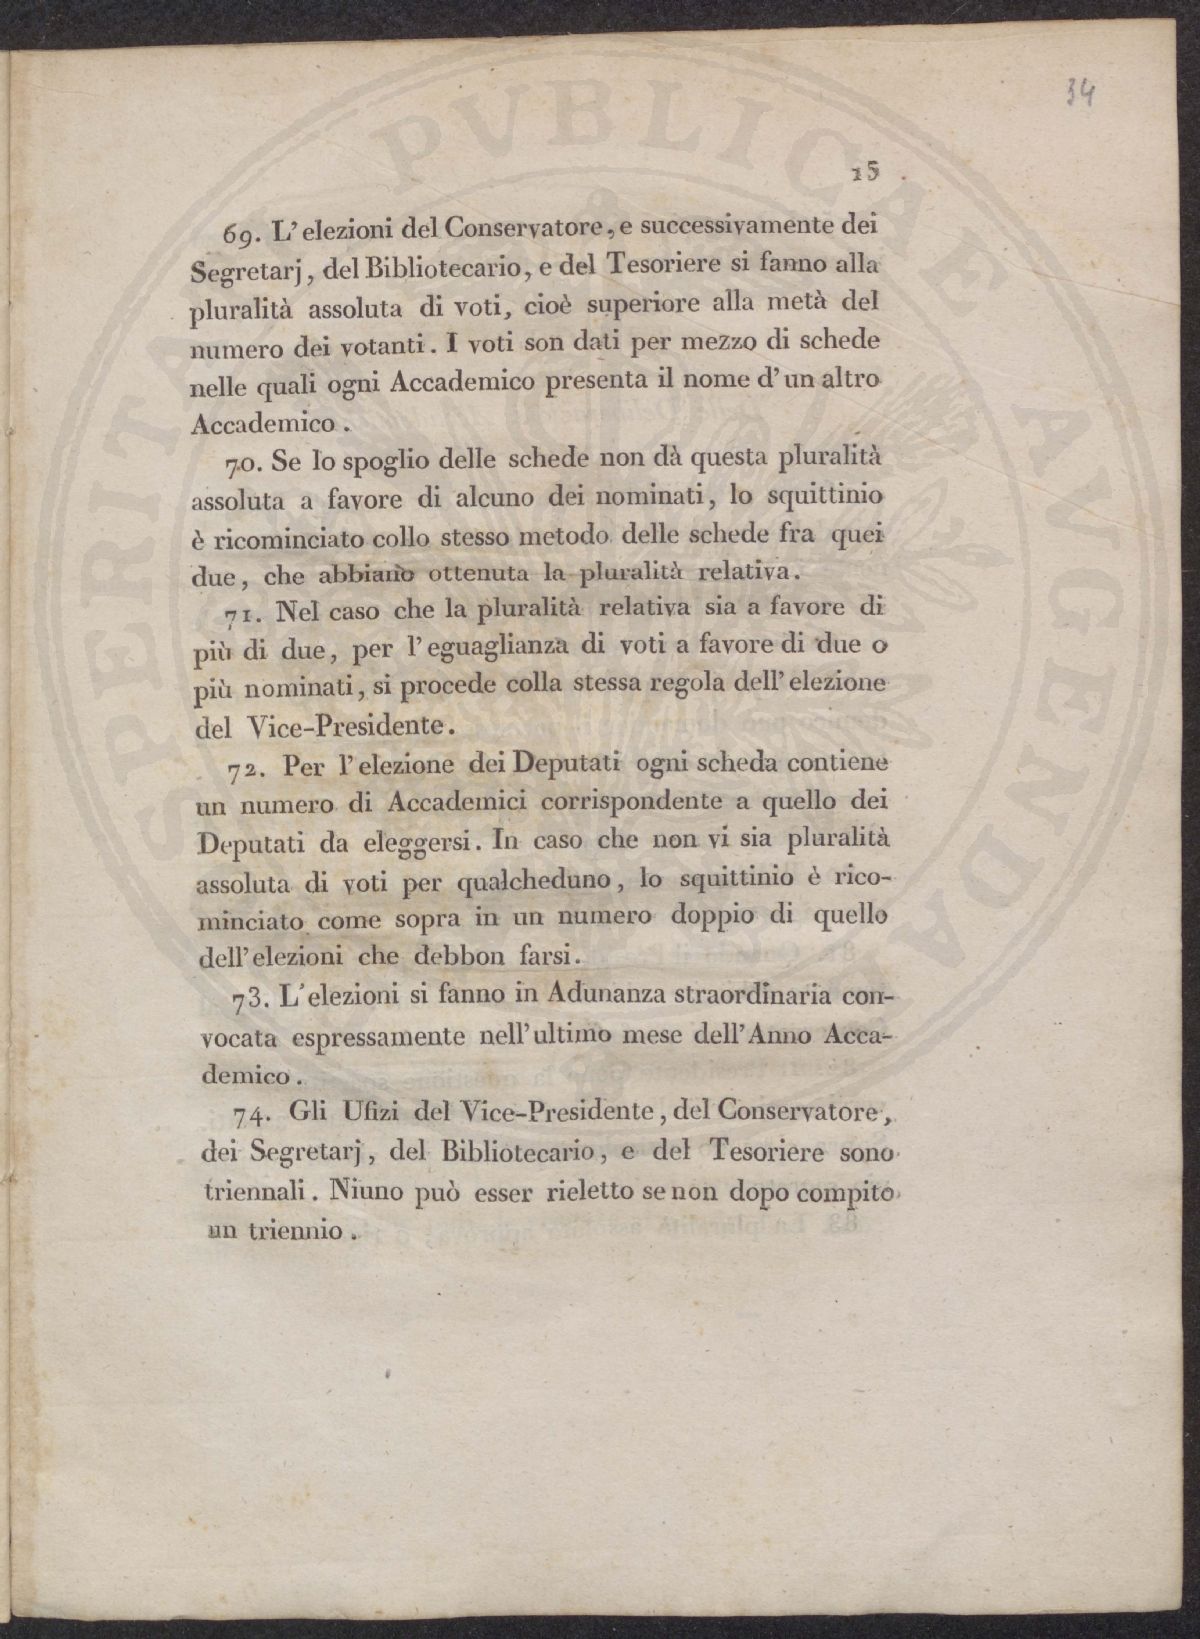 34
15
69. L' elezioni del Conservatore, e successivamente dei
Segretarj, del Bibliotecario, e del Tesoriere si fanno alla
pluralità assoluta di voti, cioè superiore alla metà del
numero dei votanti. I voti son dati per mezzo di schede
nelle quali ogni Accademico presenta il nome d' un altro
Accademico.
70. Se lo spoglio delle schede non dà questa pluralità
assoluta a favore di alcuno dei nominati, lo squittinio
è ricominciato collo stesso metodo delle schede fra quei
due, che abbiano ottenuta la pluralità relativa.
71. Nel caso che la pluralità relativa sia a favore di
più di due, per l' eguaglianza di voti a favore di due o
più nominati, si procede colla stessa regola dell' elezione
del Vice-Presidente.
72. Per l' elezione dei Deputati ogni scheda contiene
un numero di Accademici corrispondente a quello dei
Deputati da eleggersi. In caso che non vi sia pluralità
assoluta di voti per qualcheduno, lo squittinio è rico-
minciato come sopra in un numero doppio di quello
dell' elezioni che debbon farsi.
73. L' elezioni si fanno in Adunanza straordinaria con-
vocata espressamente nell' ultimo mese dell' Anno Acca-
demico.
74. Gli Ufizi del Vice-Presidente, del Conservatore,
dei Segretarj, del Bibliotecario, e del Tesoriere sono
triennali. Niuno può esser rieletto se non dopo compito
un triennio.
PVBLICAE AVGENDAE
PROSPERITATI